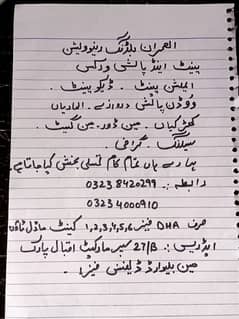 العمران بلڈنگ رینوویشن
پینٹ اینڈ پالش ورکس
ایملشن پینٹ . ڈیکو پینٹ .
ووڈن پالش دروازے . الماریاں
کھڑکیاں . مین ڈور . مین گیٹ .
سیلنگ . گرافی .
ہمارے ہاں تمام کام تسلی بخش کیا جاتا ہے.
رابطہ :. 03238420299
03234000910
صرف DHA فیز 1,2,3,4,5,6 کینٹ ماڈل ٹاؤن
ایڈریس :. 27/B سپر مارکیٹ اقبال پارک
مین بلیوارڈ ڈیفنس فیز 1.